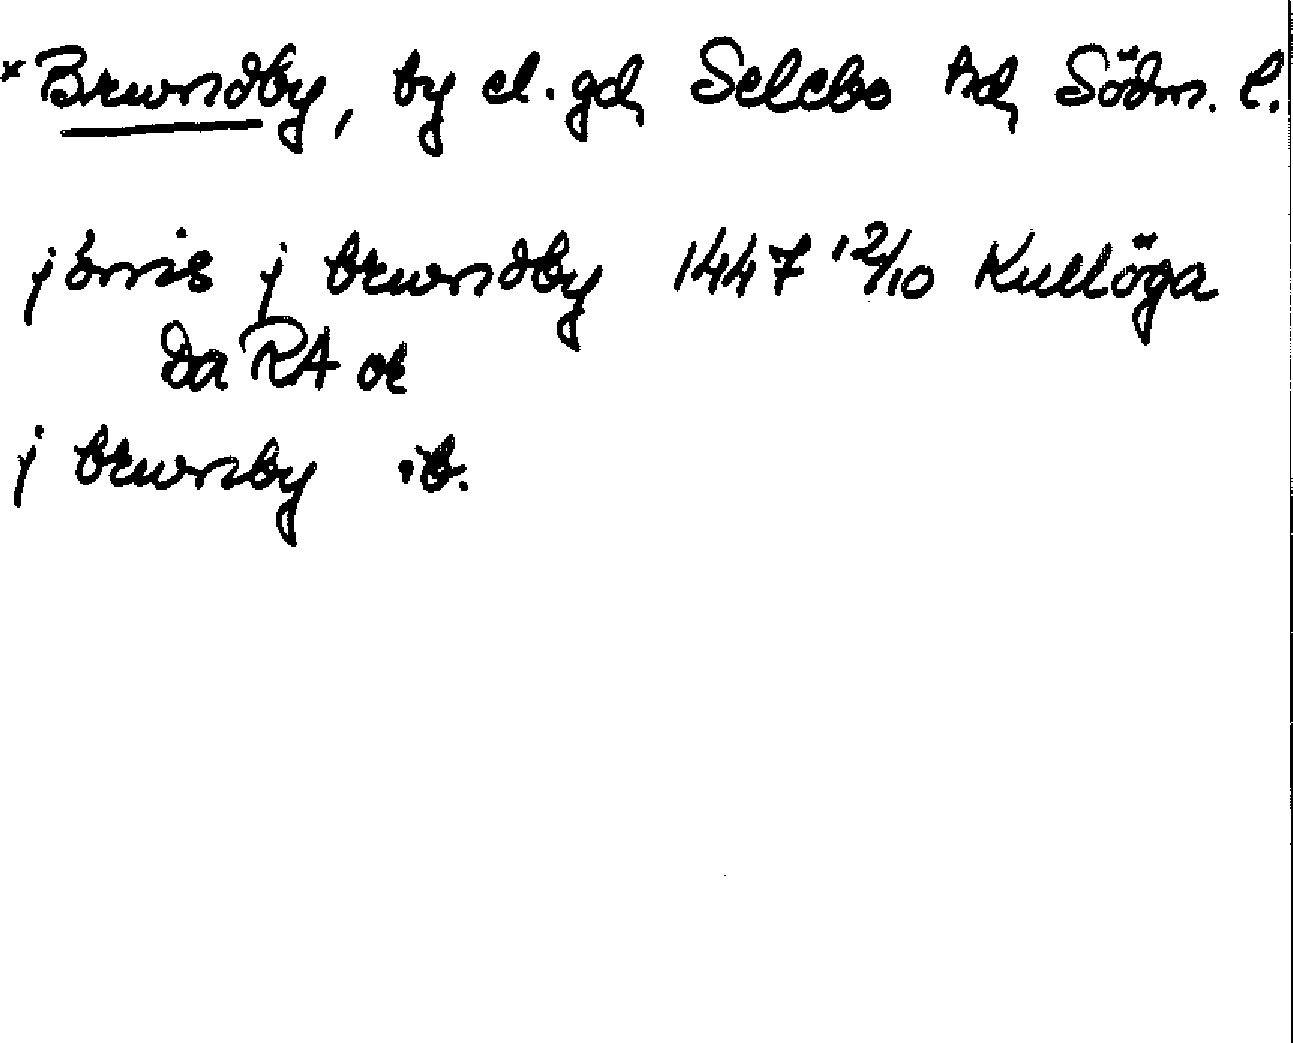 *Brwndby, by el. gd, Selebo hd, Södm. l.
jönis j brwndby 1447 12/10 Kullöga
Da RA or
j brwnby ib.